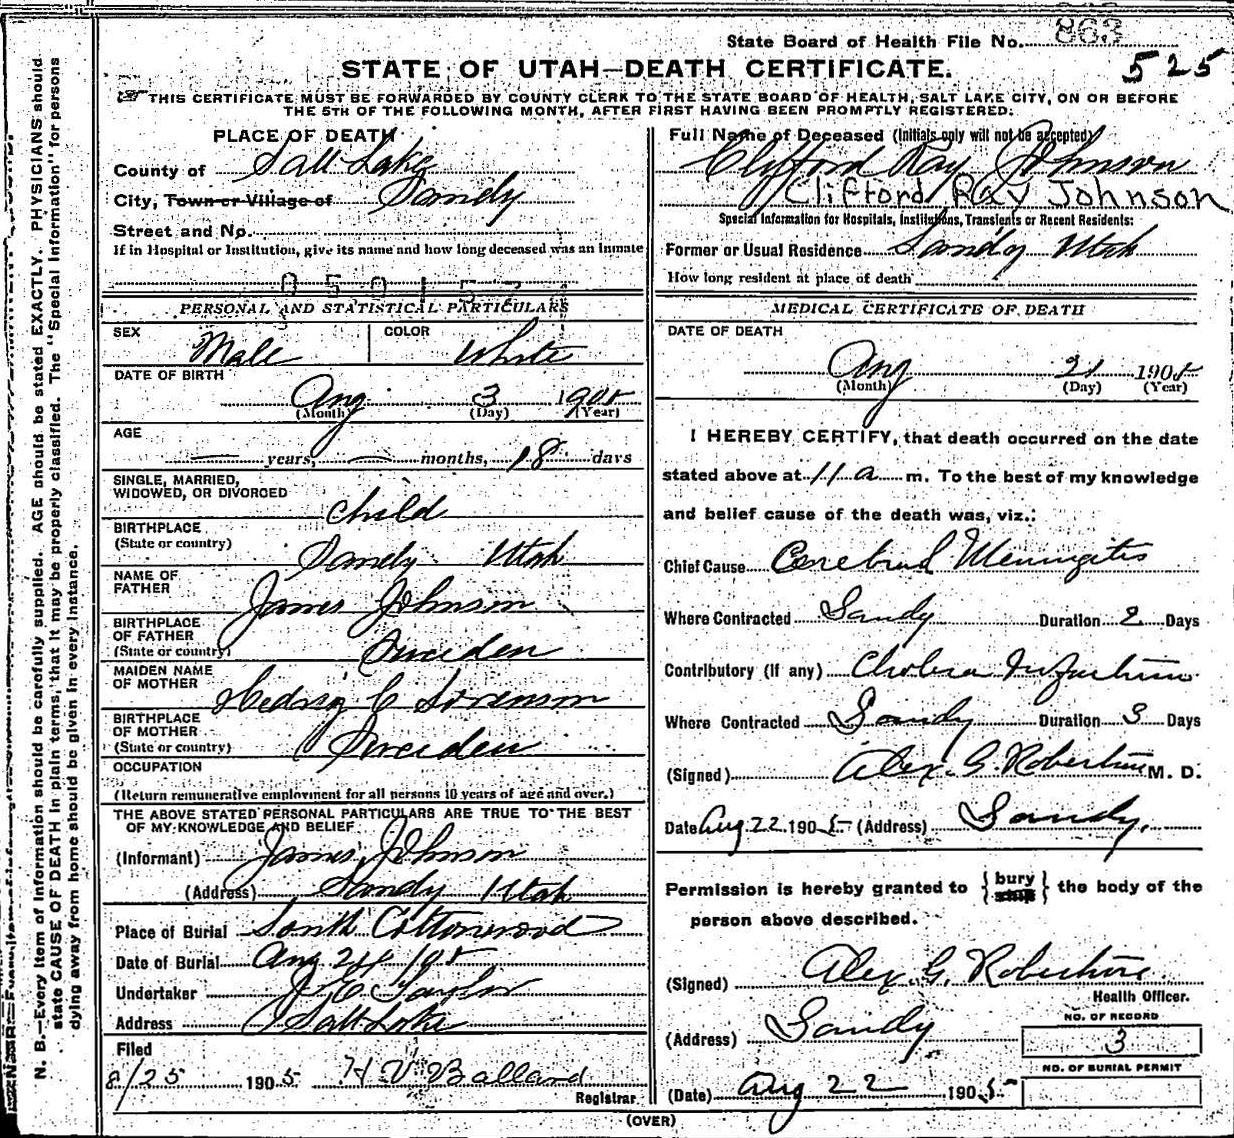 State Board of Health File No. 863
525
STATE OF UTAH—DEATH CERTIFICATE.
THIS CERTIFICATE MUST BE FORWARDED BY COUNTY CLERK TO THE STATE BOARD OF HEALTH, SALT LAKE CITY, ON OR BEFORE
THE 5TH OF THE FOLLOWING MONTH, AFTER FIRST HAVING BEEN PROMPTLY REGISTERED:
N. B.—Every item of information should be carefully supplied. AGE should be stated EXACTLY. PHYSICIANS should
state CAUSE OF DEATH in plain terms, that it may be properly classified. The "Special Information" for persons
dying away from home should be given in every instance.
PLACE OF DEATH
County of Salt Lake
City, Town or Village of Sandy
Street and No.
If in Hospital or Institution, give its name and how long deceased was an inmate
PERSONAL AND STATISTICAL PARTICULARS
SEX Male COLOR White
DATE OF BIRTH
Aug 3 1905
(Month) (Day) (Year)
AGE
— years, — months, 18 days
SINGLE, MARRIED,
WIDOWED, OR DIVORCED
Child
BIRTHPLACE
(State or country) Sandy Utah
NAME OF
FATHER James Johnson
BIRTHPLACE
OF FATHER
(State or country) Sweden
MAIDEN NAME
OF MOTHER Hedvig C Sorenson
BIRTHPLACE
OF MOTHER
(State or country) Sweden
OCCUPATION
(Return remunerative employment for all persons 10 years of age and over.)
THE ABOVE STATED PERSONAL PARTICULARS ARE TRUE TO THE BEST
OF MY KNOWLEDGE AND BELIEF
(Informant) James Johnson
(Address) Sandy Utah
Place of Burial South Cottonwood
Date of Burial Aug 24 /05
Undertaker Taylor
Address Salt Lake
Filed
8/25 1905 H V Ballard
Registrar
Full Name of Deceased (Initials only will not be accepted)
Clifford Ray Johnson
Clifford Ray Johnson
Special Information for Hospitals, Institutions, Transients or Recent Residents:
Former or Usual Residence Sandy Utah
How long resident at place of death
MEDICAL CERTIFICATE OF DEATH
DATE OF DEATH
Aug 21 1905
(Month) (Day) (Year)
I HEREBY CERTIFY, that death occurred on the date
stated above at 11 a m. To the best of my knowledge
and belief cause of the death was, viz.:
Chief Cause Cerebral Meningitis
Where Contracted Sandy Duration 2 Days
Contributory (if any) Cholera Infantum
Where Contracted Sandy Duration 3 Days
(Signed) Alex. G Robertson M. D.
Date Aug 22 1905 (Address) Sandy.
Permission is hereby granted to { bury ship } the body of the
person above described.
(Signed) Alex. G. Robertson
Health Officer.
(Address) Sandy
NO. OF RECORD
3
NO. OF BURIAL PERMIT
(Date) Aug 22 1905
(OVER)